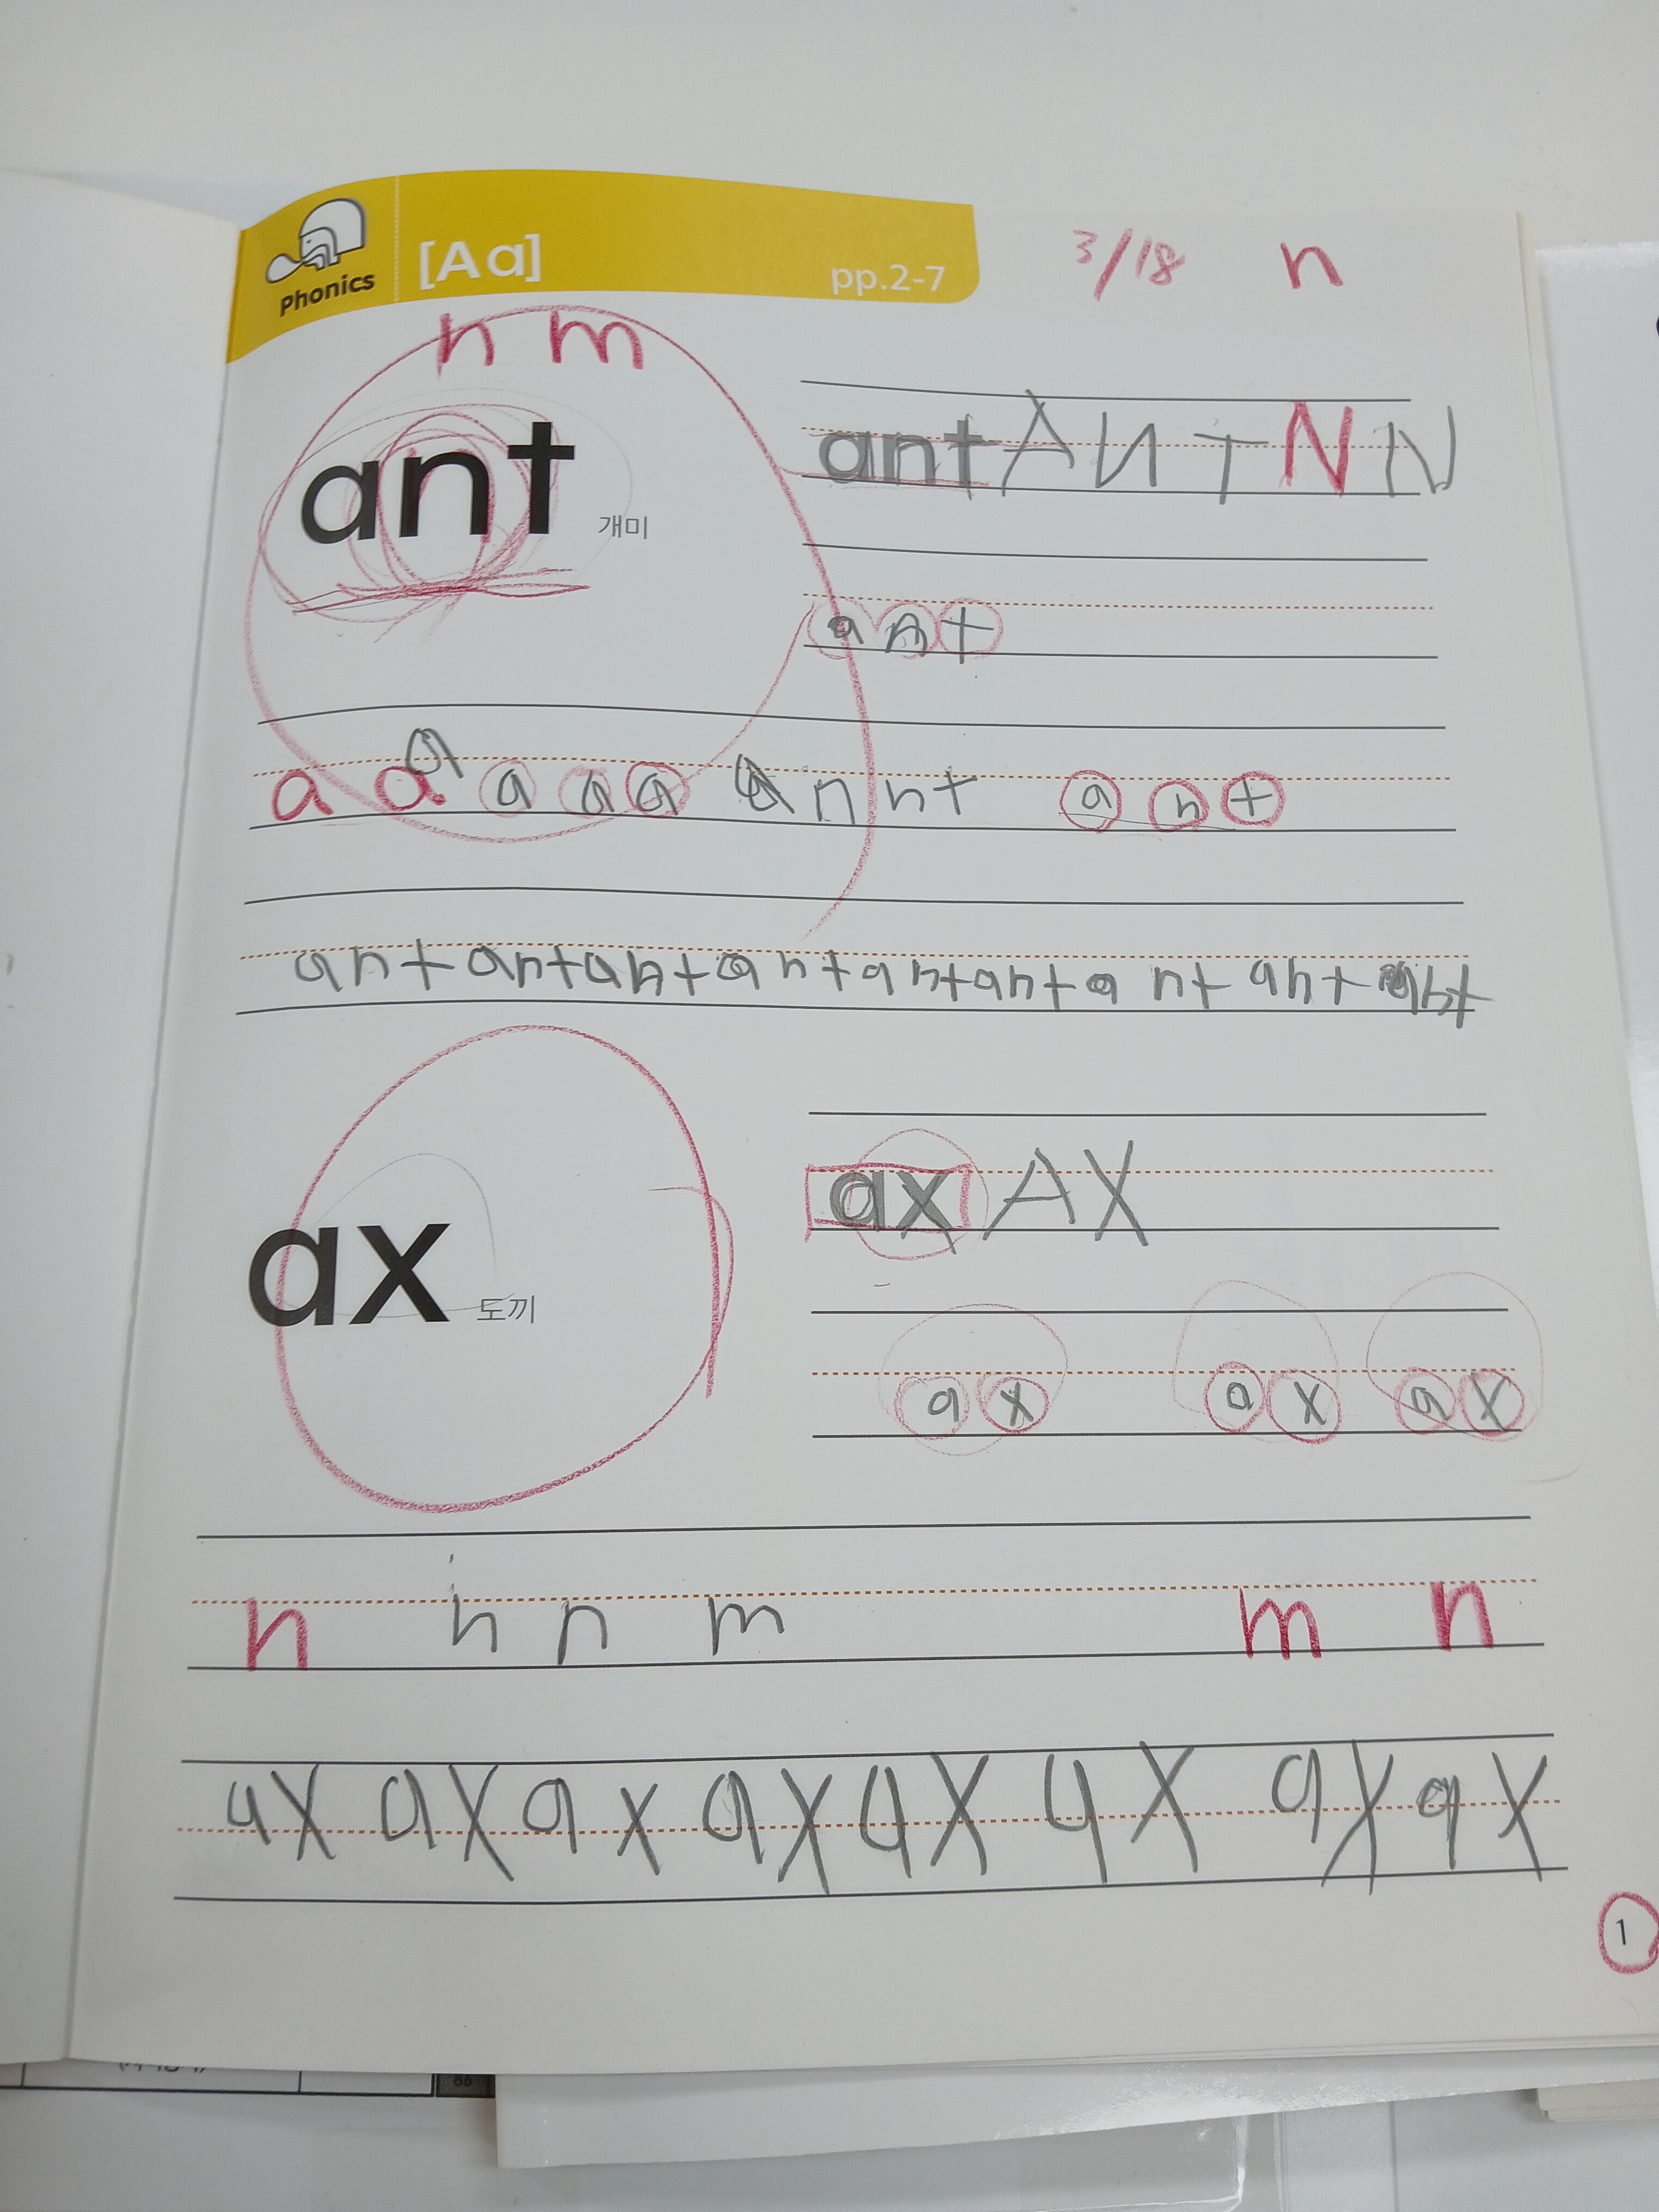 Phonics [Aa] pp.2-7 3/18 n
n m
ant 개미
ant A N T N N
a n t
a a a a a a a n n t a n t
ant ant ant ant ant ant ant ant ant
ax 도끼
ax AX
a x a x a x
n n n m m n
ax ax ax ax ax ax ax ax
1